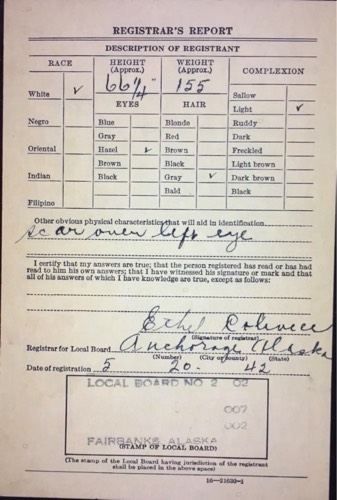 REGISTRAR'S REPORT
DESCRIPTION OF REGISTRANT
RACE
HEIGHT (Approx.)
WEIGHT (Approx.)
COMPLEXION
66 1/4"
155
White ✓
EYES
HAIR
Sallow
Light ✓
Negro
Blue
Blonde
Ruddy
Gray
Red
Dark
Oriental
Hazel ✓
Brown
Freckled
Brown
Black
Light brown
Indian
Black
Gray ✓
Dark brown
Bald
Black
Filipino
Other obvious physical characteristics that will aid in identification
scar over left eye
I certify that my answers are true; that the person registered has read or has had
read to him his own answers; that I have witnessed his signature or mark and that
all of his answers of which I have knowledge are true, except as follows:
Ethel
(Signature of registrar)
Registrar for Local Board Anchorage Alaska
(Number) (City or county) (State)
Date of registration 5 20. 42
LOCAL BOARD NO 2 02
007
002
FAIRBANKS ALASKA
(STAMP OF LOCAL BOARD)
(The stamp of the Local Board having jurisdiction of the registrant
shall be placed in the above space)
16—21630-1